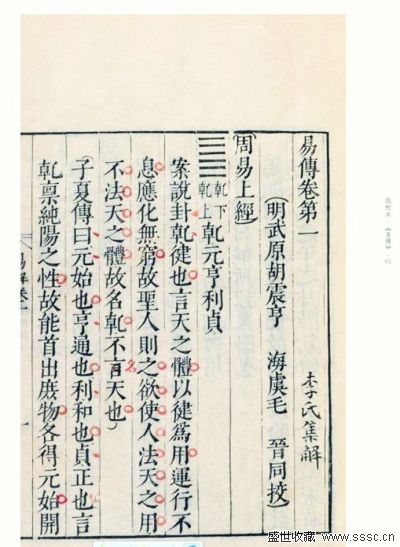 易傳卷第一
李氏集解
(明武原胡震亨 海虞毛 晉同挍)
(周易上經)
䷀ 乾下 乾上 乾元亨利貞
案說卦乾徤也言天之體以徤爲用運行不
息應化無窮故聖人則之欲使人法天之用
不法天之體故名乾不言天也)
名
(子夏傳曰元始也亨通也利和也貞正也言
乾禀純陽之性故能首出庶物各得元始開
易解卷一
一
盛世收藏 www.sssc.cn